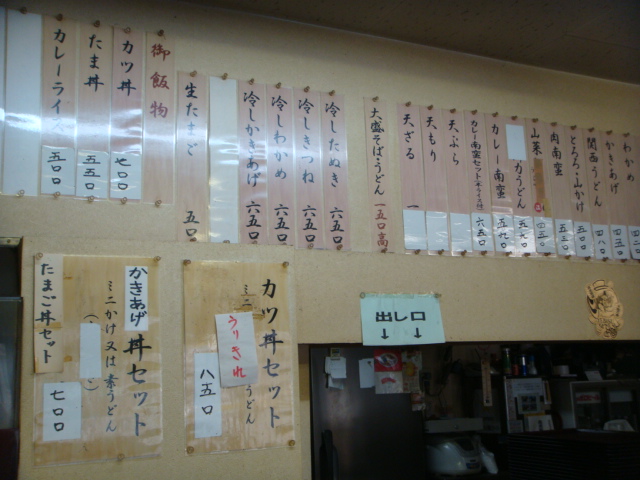 わかめ
かきあげ
関西うどん
とろろ・山かけ
肉南蛮
山菜
力うどん
カレー南蛮
カレー南蛮セット
六五〇
天ぷら
天もり
天ざる
大盛そば・うどん 一五〇高
冷したぬき 六五〇
冷しきつね 六五〇
冷しわかめ 六五〇
冷しかきあげ 六五〇
生たまご 五〇
御飯物
カツ丼 七〇〇
たま丼 五五〇
カレーライス 五〇〇
出し口
↓ ↓
カツ丼セット
うりきれ
八五〇
かきあげ丼セット
ミニかけ又は素うどん
たまご丼セット
七〇〇